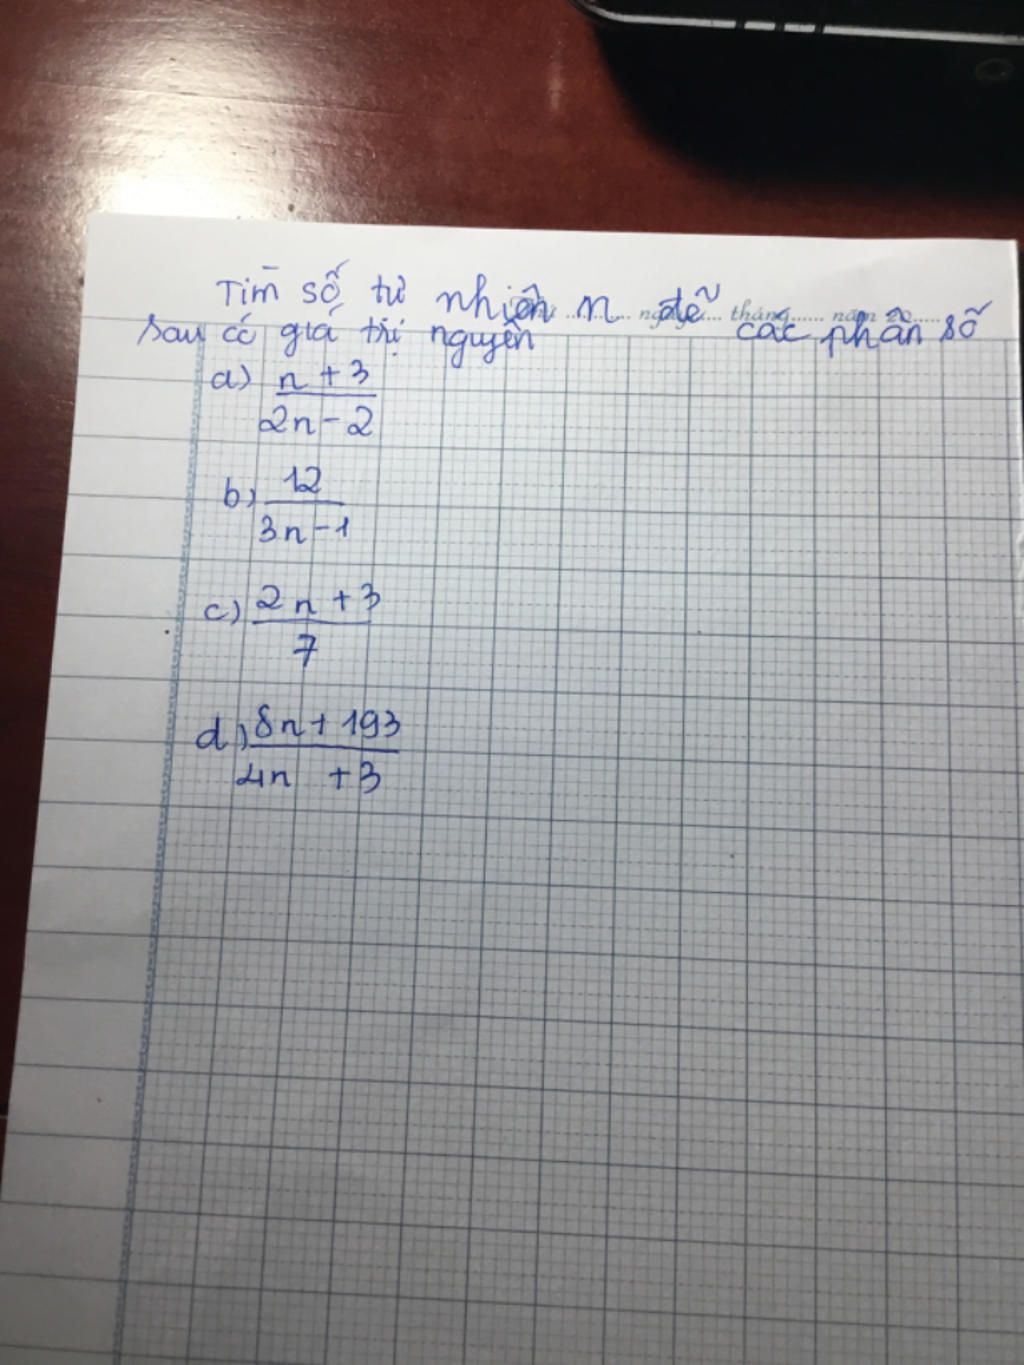 Tìm số tự nhiên n để các phân số
sau có giá trị nguyên
tháng...... năm 20.....
a) n + 3
2n - 2
b) 12
3n - 1
c) 2n + 3
7
d) 8n + 193
4n + 3